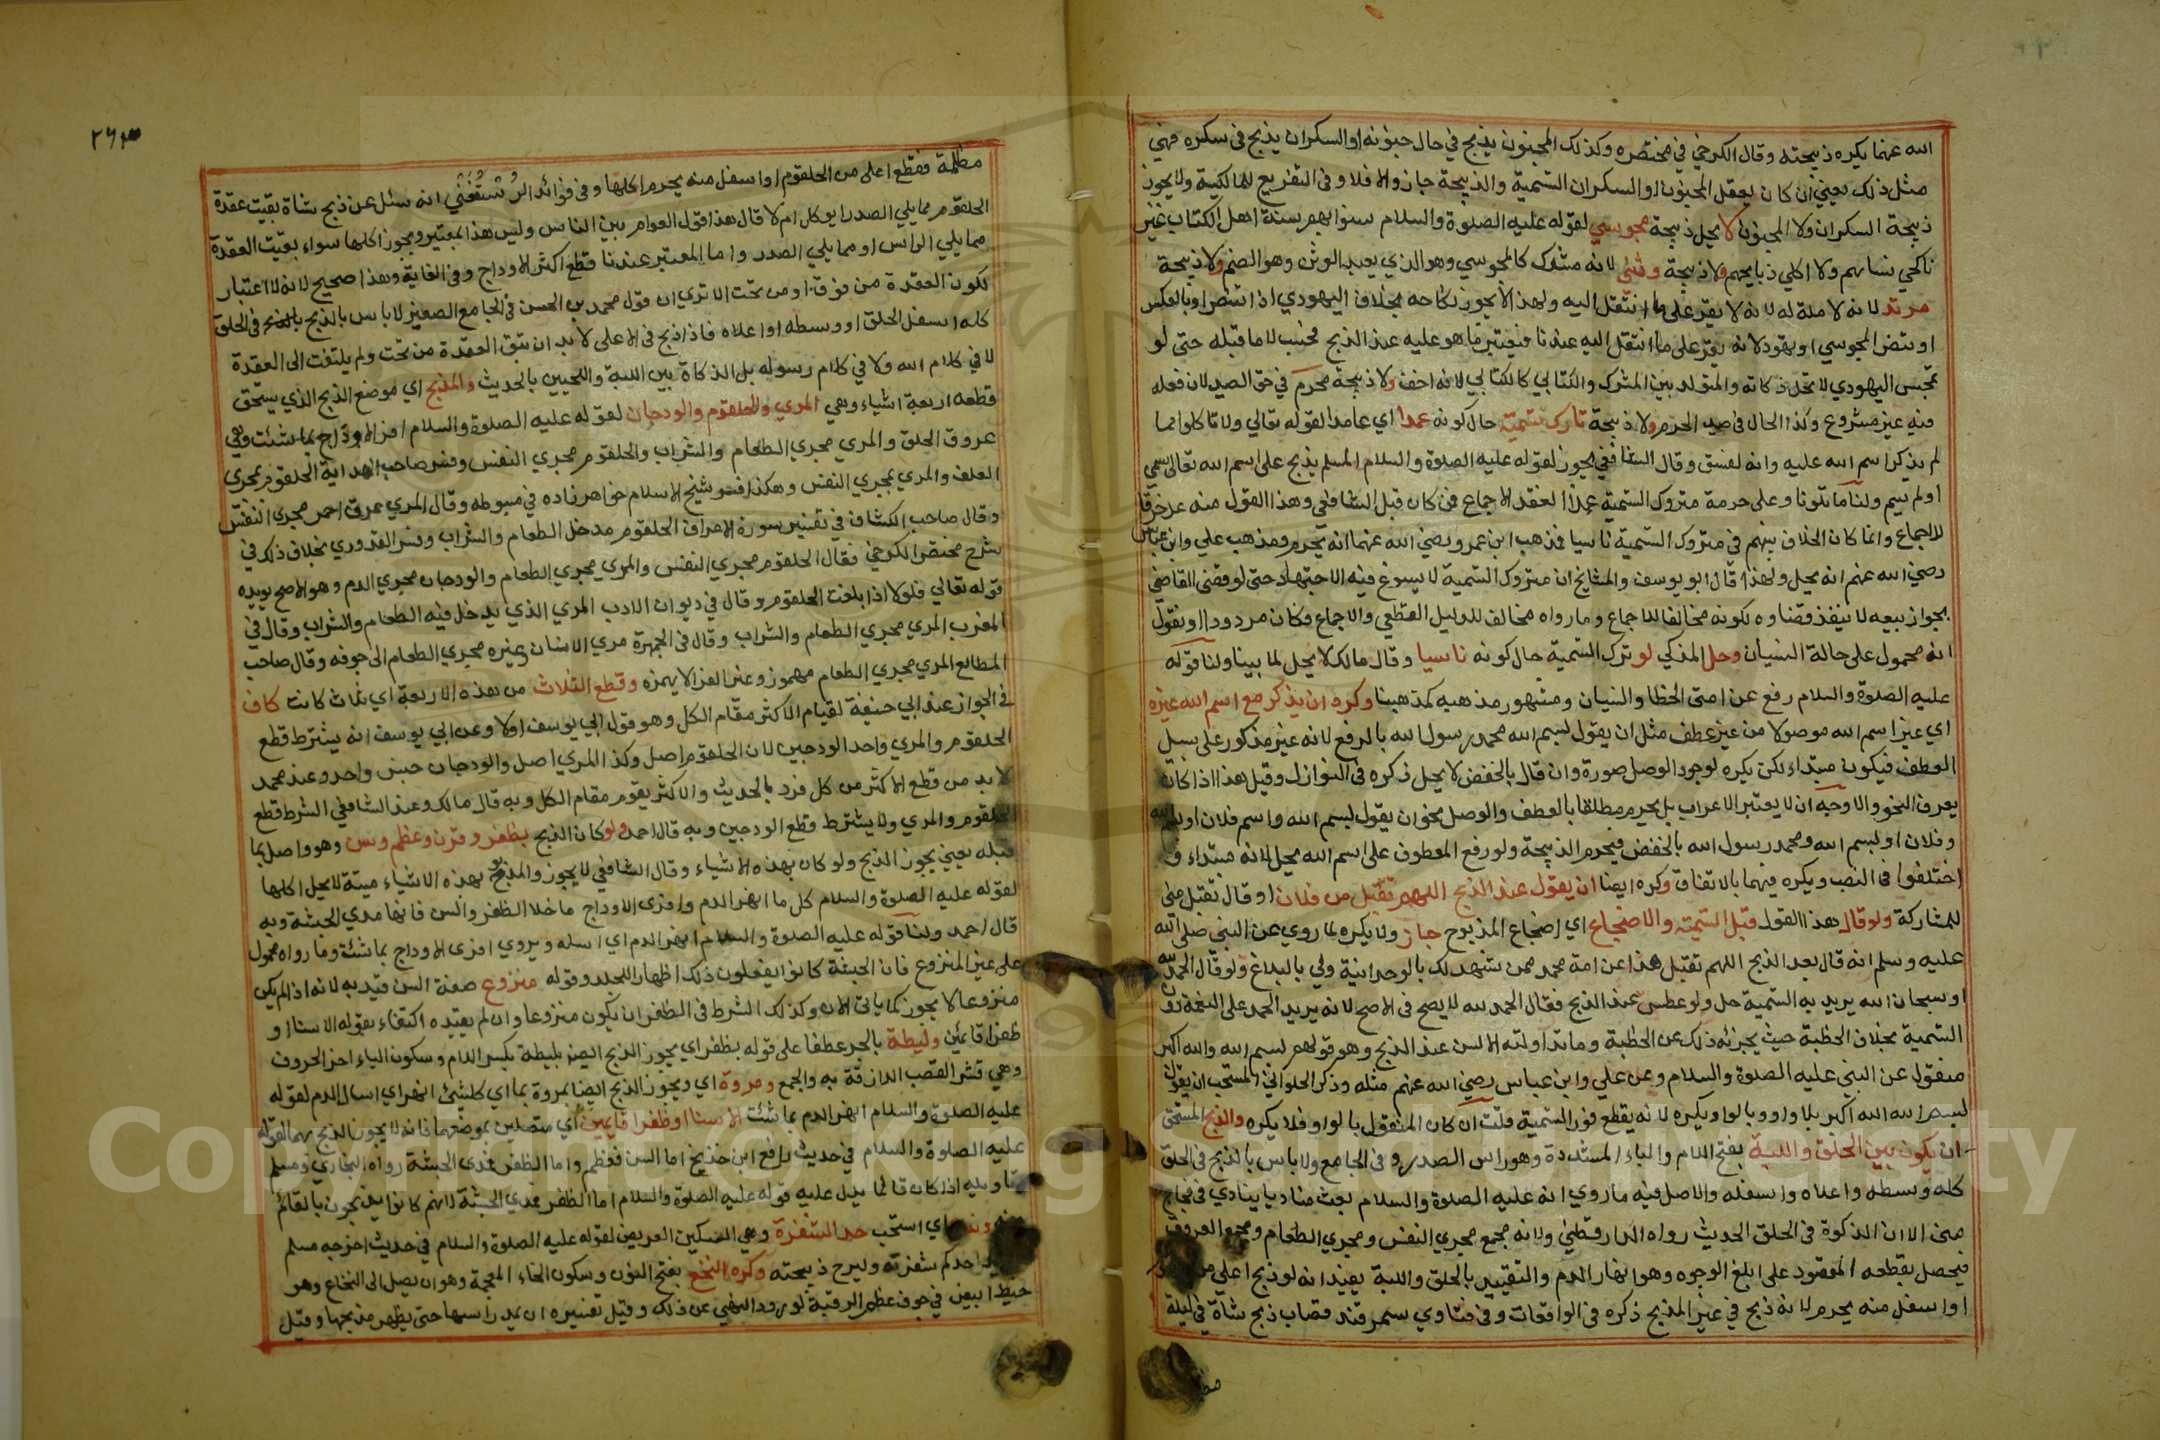 الله عنهما يكره ذبيحته وقال الكرخي في مختصره وكذلك المجنون يذبح في حال جنونه او السكران يذبح في سكره فهي
مثل ذلك يعني ان كان يعقل المجنون او السكران التسمية والذبيحة جاز والا فلا وفي التفريع للمالكية ولا يجوز
ذبيحة السكران ولا المجنون لا يحل ذبيحة مجوسي لقوله عليه الصلوة والسلام سنوا بهم سنة اهل الكتاب غير
ناكحي نسائهم ولا اكلي ذبايحهم ولا ذبيحة وثني لانه مشرك كالمجوسي وهو الذي يعبد الوثن وهو الصنم ولا ذبيحة
مرتد لانه لا ملة له لانه لا يقر على ما انتقل اليه ولهذا لا يجوز نكاحه بخلاف اليهودي اذا تنصر او بالعكس
او تنصر المجوسي او يهود لانه يقر على ما انتقل اليه عندنا فيعتبر ما هو عليه عند الذبح فحسب لا ما قبله حتى لو
تمجس اليهودي لا تحل ذكاته والمتولد بين المشرك والكتابي كالكتابي لانه اخف ولا ذبيحة محرم في حق الصيد لان فعله
فيه غير مشروع وكذا الحال في صيد الحرم ولا ذبيحة تارك تسمية حال كونه عمدا اي عامدا لقوله تعالي ولا تاكلوا مما
لم يذكر اسم الله عليه وانه لفسق وقال الشافعي يجوز لقوله عليه الصلوة والسلام المسلم يذبح على اسم الله تعالى سمي
او لم يسم ولنا ما تلونا وعلى حرمة متروك التسمية عمدا انعقد الاجماع فمن كان قبل الشافعي وهذا القول منه عد خرقا
للاجماع وانما كان الخلاف بينهم في متروك التسمية ناسيا فمذهب ابن عمر رضي الله عنهما انه يحرم ومذهب علي وابن عباس
رضي الله عنهم انه يحل ولهذا قال ابو يوسف والمشايخ ان متروك التسمية لا يسوغ فيه الاجتهاد حتى لو قضى القاضي
بجواز بيعه لا ينفذ قضاوه لكونه مخالفا للاجماع وما رواه مخالف للدليل القطعي والاجماع فكان مردودا او نقول
انه محمول على حالة النسيان وحل المذكي لو ترك التسمية حال كونه ناسيا وقال مالك لا يحل لما بينا ولنا قوله
عليه الصلوة والسلام رفع عن امتى الخطا والنسيان ومشهور مذهبه كمذهبنا وكره ان يذكر مع اسم الله غيره
اي غير اسم الله موصولا من غير عطف مثل ان يقول بسم الله محمد رسول الله بالرفع لانه غير مذكور على سبيل
العطف فيكون مبتداء لكن يكره لوجود الوصل صورة وان قال بالخفض لا يحل ذكره في النوازل وقيل هذا اذا كان
يعرف النحو والاوجه ان لا يعتبر الاعراب بل يحرم مطلقا بالعطف والوصل نحو ان يقول بسم الله واسم فلان او بسم الله
وفلان او بسم الله ومحمد رسول الله بالخفض فيحرم الذبيحة ولو رفع المعطوف على اسم الله يحل لانه مبتداء و
اختلفوا في النصب ويكره فيهما بالاتفاق وكره ايضا ان يقول عند الذبح اللهم تقبل من فلان او قال تقبل مني
للمشاركة ولو قال هذا القول قبل التسمية والاضجاع اي اضجاع المذبوح جاز ولا يكره لما روي عن النبي صلى الله
عليه وسلم انه قال بعد الذبح اللهم تقبل هذا عن امة محمد ممن شهد لك بالوحدانية ولي بالبلاغ ولو قال الحمد لله
او سبحان الله يريد به التسمية حل ولو عطس عند الذبح فقال الحمد لله لا يصح في الاصح لانه يريد الحمد على النعمة دون
التسمية بخلاف الخطبة حيث يجزئه ذلك عن الخطبة وما تداولته الالسن عند الذبح وهو قولهم بسم الله والله اكبر
منقول عن النبي عليه الصلوة والسلام وعن علي وابن عباس رضي الله عنهم مثله وذكر الحلواني المستحب ان يقول
بسم الله الله اكبر بلا واو وبالواو يكره لانه يقطع فور التسمية قلت ان كان المنقول بالواو فلا يكره والذبح المستحق
ان يكون بين الحلق واللبة بفتح اللام والباء المشددة وهو راس الصدر وفي الجامع ولا باس بالذبح في الحلق
كله وسطه واعلاه واسفله والاصل فيه ما روي انه عليه الصلوة والسلام بعث مناديا ينادي في فجاج
منى الا ان الذكوة في الحلق الحديث رواه الدارقطني ولانه مجمع مجري النفس ومجري الطعام ومجمع العروق
فيحصل بقطعه المقصود على ابلغ الوجوه وهو انهار الدم والتقييد بالحلق واللبة يفيد انه لو ذبح اعلى من
او اسفل منه يحرم لانه ذبح في غير المذبح ذكره في الواقعات وفي فتاوي سمرقند قصاب ذبح شاة في ليلة
مظلمة فقطع اعلى من الحلقوم او اسفل منه يحرم اكلها وفي فوائد الرُّسْتُغْفَنِي انه سئل عن ذبح شاة بقيت عقدة
الحلقوم مما يلي الصدر ايوكل ام لا قال هذا قول العوام بين الناس وليس هذا بمعتبر ويجوز اكلها سواء بقيت العقدة
مما يلي الراس او مما يلي الصدر وانما المعتبر عندنا قطع اكثر الاوداج وفي الغاية وهذا صحيح لانه لا اعتبار
لكون العقدة من فوق او من تحت الا تري ان قول محمد بن الحسن في الجامع الصغير لا باس بالذبح في الحلق
كله اسفل الحلق او وسطه او اعلاه فاذا ذبح في الاعلى لا بد ان تبق العقدة من تحت ولم يلتفت الى العقدة
لا في كلام الله ولا في كلام رسوله بل الذكاة بين اللبة واللحيين بالحديث والمذبح اي موضع الذبح الذي يستحق
قطعه اربعة اشياء وهي المري والحلقوم والودجان لقوله عليه الصلوة والسلام افر الاوداج بما شئت وهي
عروق الحلق والمري مجري الطعام والشراب والحلقوم مجري النفس وفسر صاحب الهداية الحلقوم بمجري
العلف والمري بمجري النفس وهكذا فسر شيخ الاسلام خواهر زاده في مبسوطه وقال المري عرق احمر مجري النفس
وقال صاحب الكشاف في تفسير سورة الاعراف الحلقوم مدخل الطعام والشراب وفسر القدوري بخلاف ذلك في
شرح مختصر الكرخي فقال الحلقوم مجري النفس والمري مجري الطعام والودجان مجري الدم وهو الاصح يويده
قوله تعالي فلولا اذا بلغت الحلقوم وقال في ديوان الادب المري الذي يدخل فيه الطعام والشراب وقال في
المغرب المري مجري الطعام والشراب وقال في الجمهرة مري الانسان وغيره مجري الطعام الى جوفه وقال صاحب
المطالع المري مجري الطعام مهموز وغير الفراء لا يهمزه وقطع الثلاث من هذه الاربعة اي ثلاث كانت كاف
في الجواز عند ابي حنيفة لقيام الاكثر مقام الكل وهو قول ابي يوسف اولا وعن ابي يوسف انه يشترط قطع
الحلقوم والمري واحد الودجين لان الحلقوم اصل وكذا المري اصل والودجان جنس واحد وعند محمد
لا بد من قطع الاكثر من كل فرد بالحديث والاكثر يقوم مقام الكل وبه قال مالك وعند الشافعي الشرط قطع
الحلقوم والمري ولا يشترط قطع الودجين وبه قال احمد ولو كان الذبح بظفر وقرن وعظم وسن وهو واصل بما
قبله يعني يجوز الذبح ولو كان بهذه الاشياء وقال الشافعي لا يجوز والمذبوح بهذه الاشياء ميتة لا يحل اكلها
لقوله عليه الصلوة والسلام كل ما انهر الدم وافري الاوداج ما خلا الظفر والسن فانها مدي الحبشة وبه
قال احمد ولنا قوله عليه الصلوة والسلام انهر الدم اي اسله ويروي افري الاوداج بما شئت وما رواه محمول
على غير المنزوع فان الحبشة كانوا يفعلون ذلك اظهارا للجلد وقوله منزوع صفة السن قيد به لانه اذا لم يكن
منزوعا لا يجوز كما ياتي الان وكذلك الشرط في الظفر ان يكون منزوعا وان لم يقيده اكتفاء بقوله الا سنا او
ظفرا قائمين وليطة بالجر عطفا على قوله بظفر اي يجوز الذبح ايضا بليطة بكسر اللام وسكون الياء اخر الحروف
وهي قشر القصب اللازقة به والجمع ومروة اي ويجوز الذبح ايضا بمروة بما اي كلشئ انهر اي اسال الدم لقوله
عليه الصلوة والسلام انهر الدم بما شئت الا سنا او ظفرا قايمين اي متصلين بموضعهما فانه لا يجوز الذبح بهما لقوله
عليه الصلوة والسلام في حديث رافع ابن خديج اما السن فعظم واما الظفر فمدي الحبشة رواه البخاري ومسلم
تاويله اذا كان قائما يدل عليه قوله عليه الصلوة والسلام اما الظفر فمدي الحبشة لانهم كانوا يذبحون بالقائم
اي استحب حد الشفرة وهي السكين العريض لقوله عليه الصلوة والسلام في حديث اخرجه مسلم
احدكم شفرته وليرح ذبيحته وكره النخع بفتح النون وسكون الخاء المعجمة وهو ان يصل الى النخاع وهو
خيط ابيض في جوف عظم الرقبة لورود النهي عن ذلك وقيل تفسيره ان يمد راسها حتى يظهر مذبحها وقيل
Copyright © King Saud University